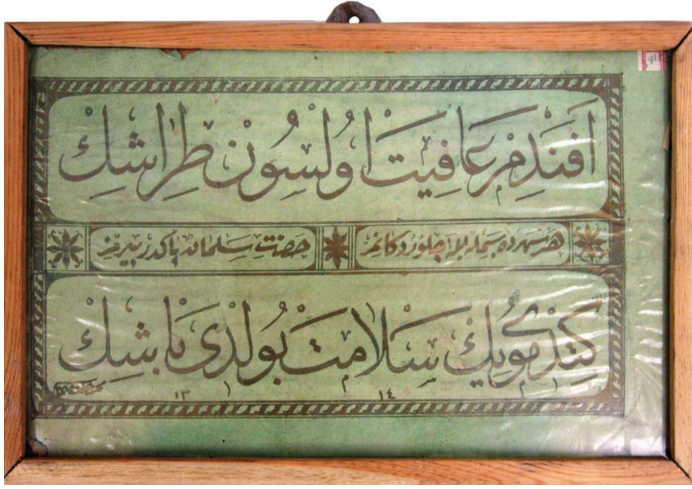 افَندِمْ عَافِيَتْ اوُلْسُوْنْ طِرَاشِكْ
هر سحرده بسمله ايله اچلور دكانمز حضرت سلمان پاكدر پيرمز
كِتدِى مُويِكْ سَلَامَتْ بُولْدِى بَاشِكْ
١٣ ١٤